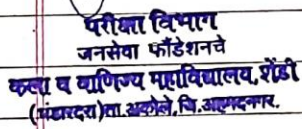 परीक्षा विभाग
जनसेवा फौंडेशनचे
कला व वाणिज्य महाविद्यालय, शेंडी
(भंडारदरा) ता. अकोले, जि. अहमदनगर.